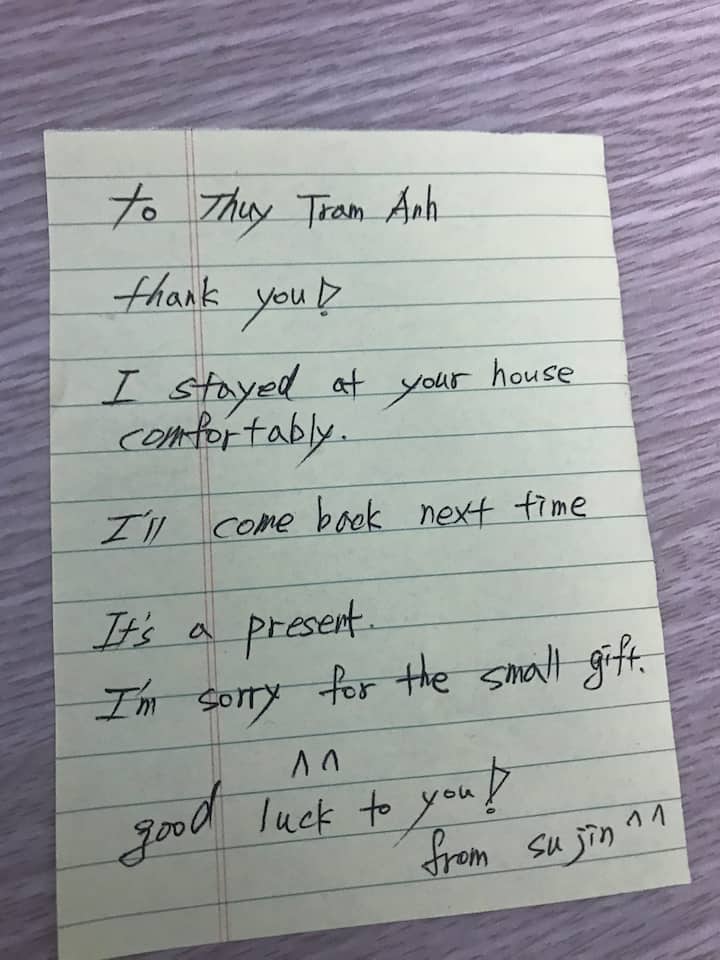 to Thuy Tram Anh
thank you!
I stayed at your house
comfortably.
I'll come back next time
It's a present.
I'm sorry for the small gift.
^^
good luck to you!
from su jin ^^